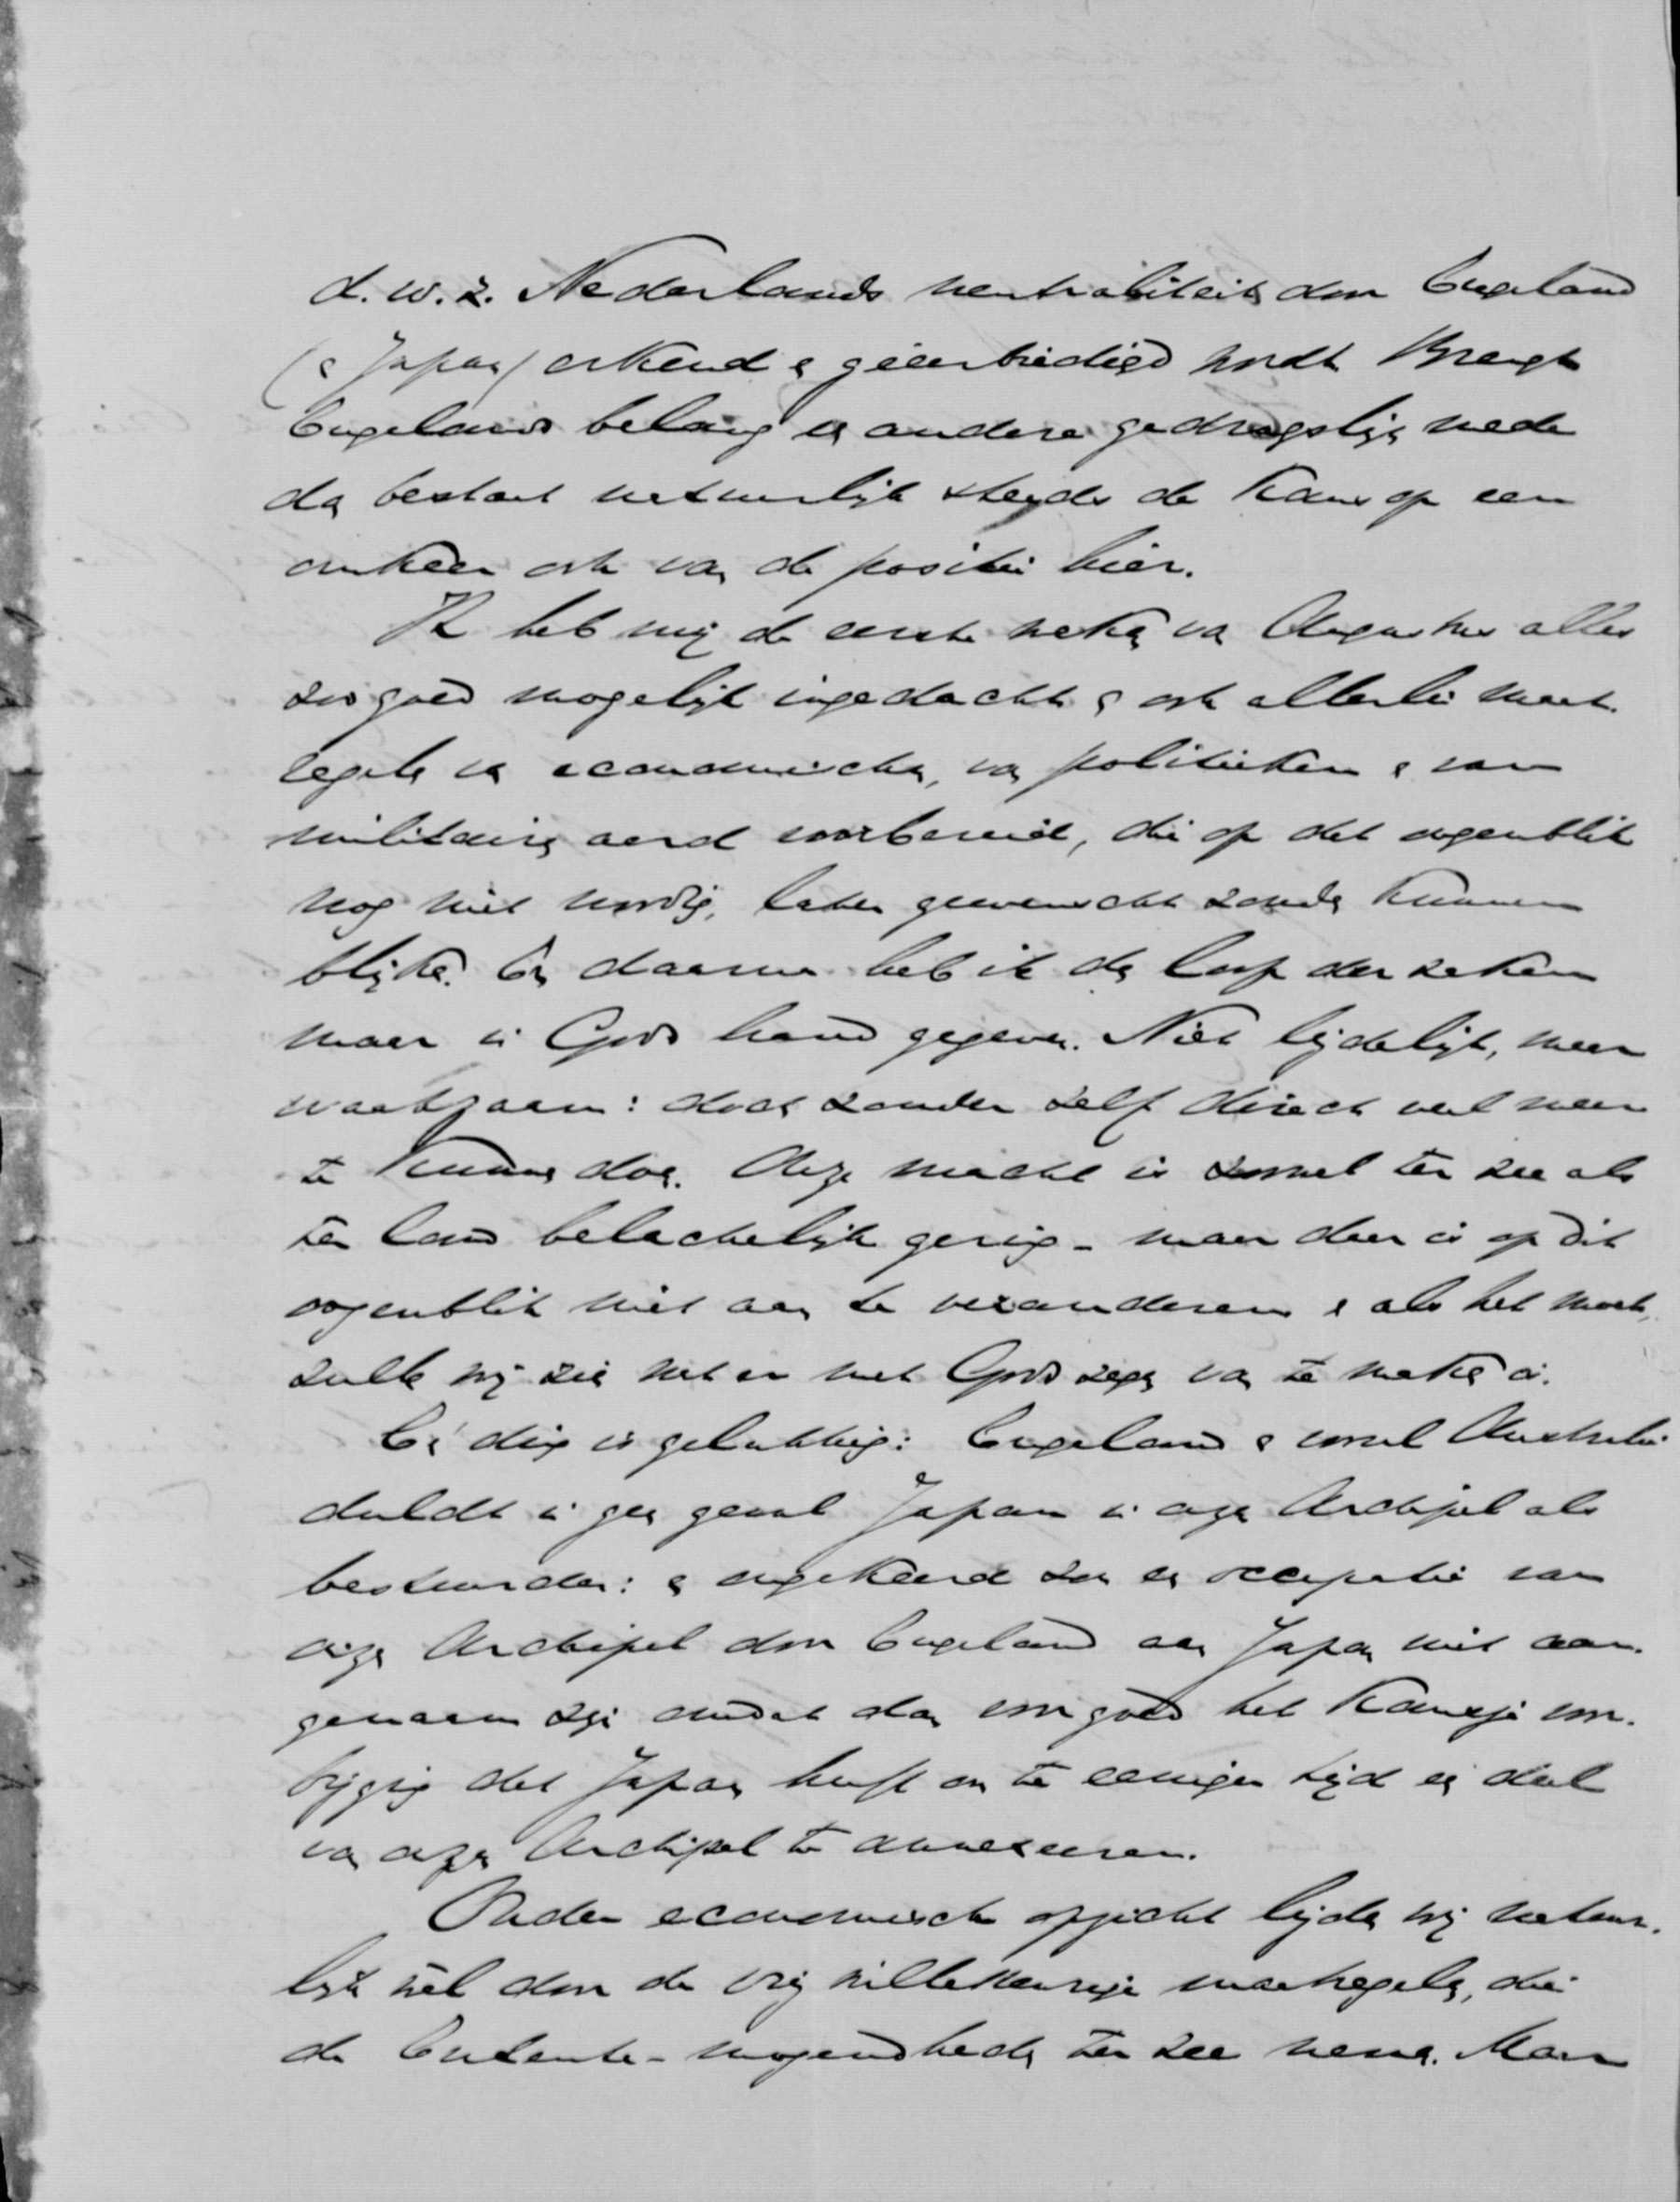 d. w. z. Nederlands neutraliteit door Engeland
(en Japan) erkend en geëerbiedigd wordt. Brengt
Engelands belang een andere gedragslijn mede
dan bestaat natuurlijk steeds de kans op een
omkeer ook van de positie hier.
Ik heb mij de eerste weken van Augustus alles
zoo goed mogelijk ingedacht en ook allerlei maat-
regelen van economischen, van politieken en van
militairen aard voorbereid, die op dat oogenblik
nog niet noodig, later gewenscht zouden kunnen
blijken. En daarna heb ik den loop der zaken
maar in Gods hand gegeven. Niet lijdelijk, maar
waakzaam: doch zonder zelf direct veel meer
te kunnen doen. Onze macht is zoowel ter zee als
te land belachelijk gering - maar daar is op dit
oogenblik niet aan te veranderen en als het moet,
zullen wij zien wat er met Gods zegen van te maken is.
Eén ding is gelukkig: Engeland en vooral Australië
duldt in geen geval Japan in onzen Archipel als
bestuurder: en omgekeerd zou een occupatie van
onzen Archipel door Engeland aan Japan niet aan-
genaam zijn omdat dan voorgoed het kansje voor-
bijging dat Japan heeft om te eeniger tijd een deel
van onzen Archipel te annexeeren.
Onder economisch opzicht lijden wij natuur-
lijk wèl door de vrij willekeurige maatregelen, die
de Entente-mogendheden ter zee nemen. Maar